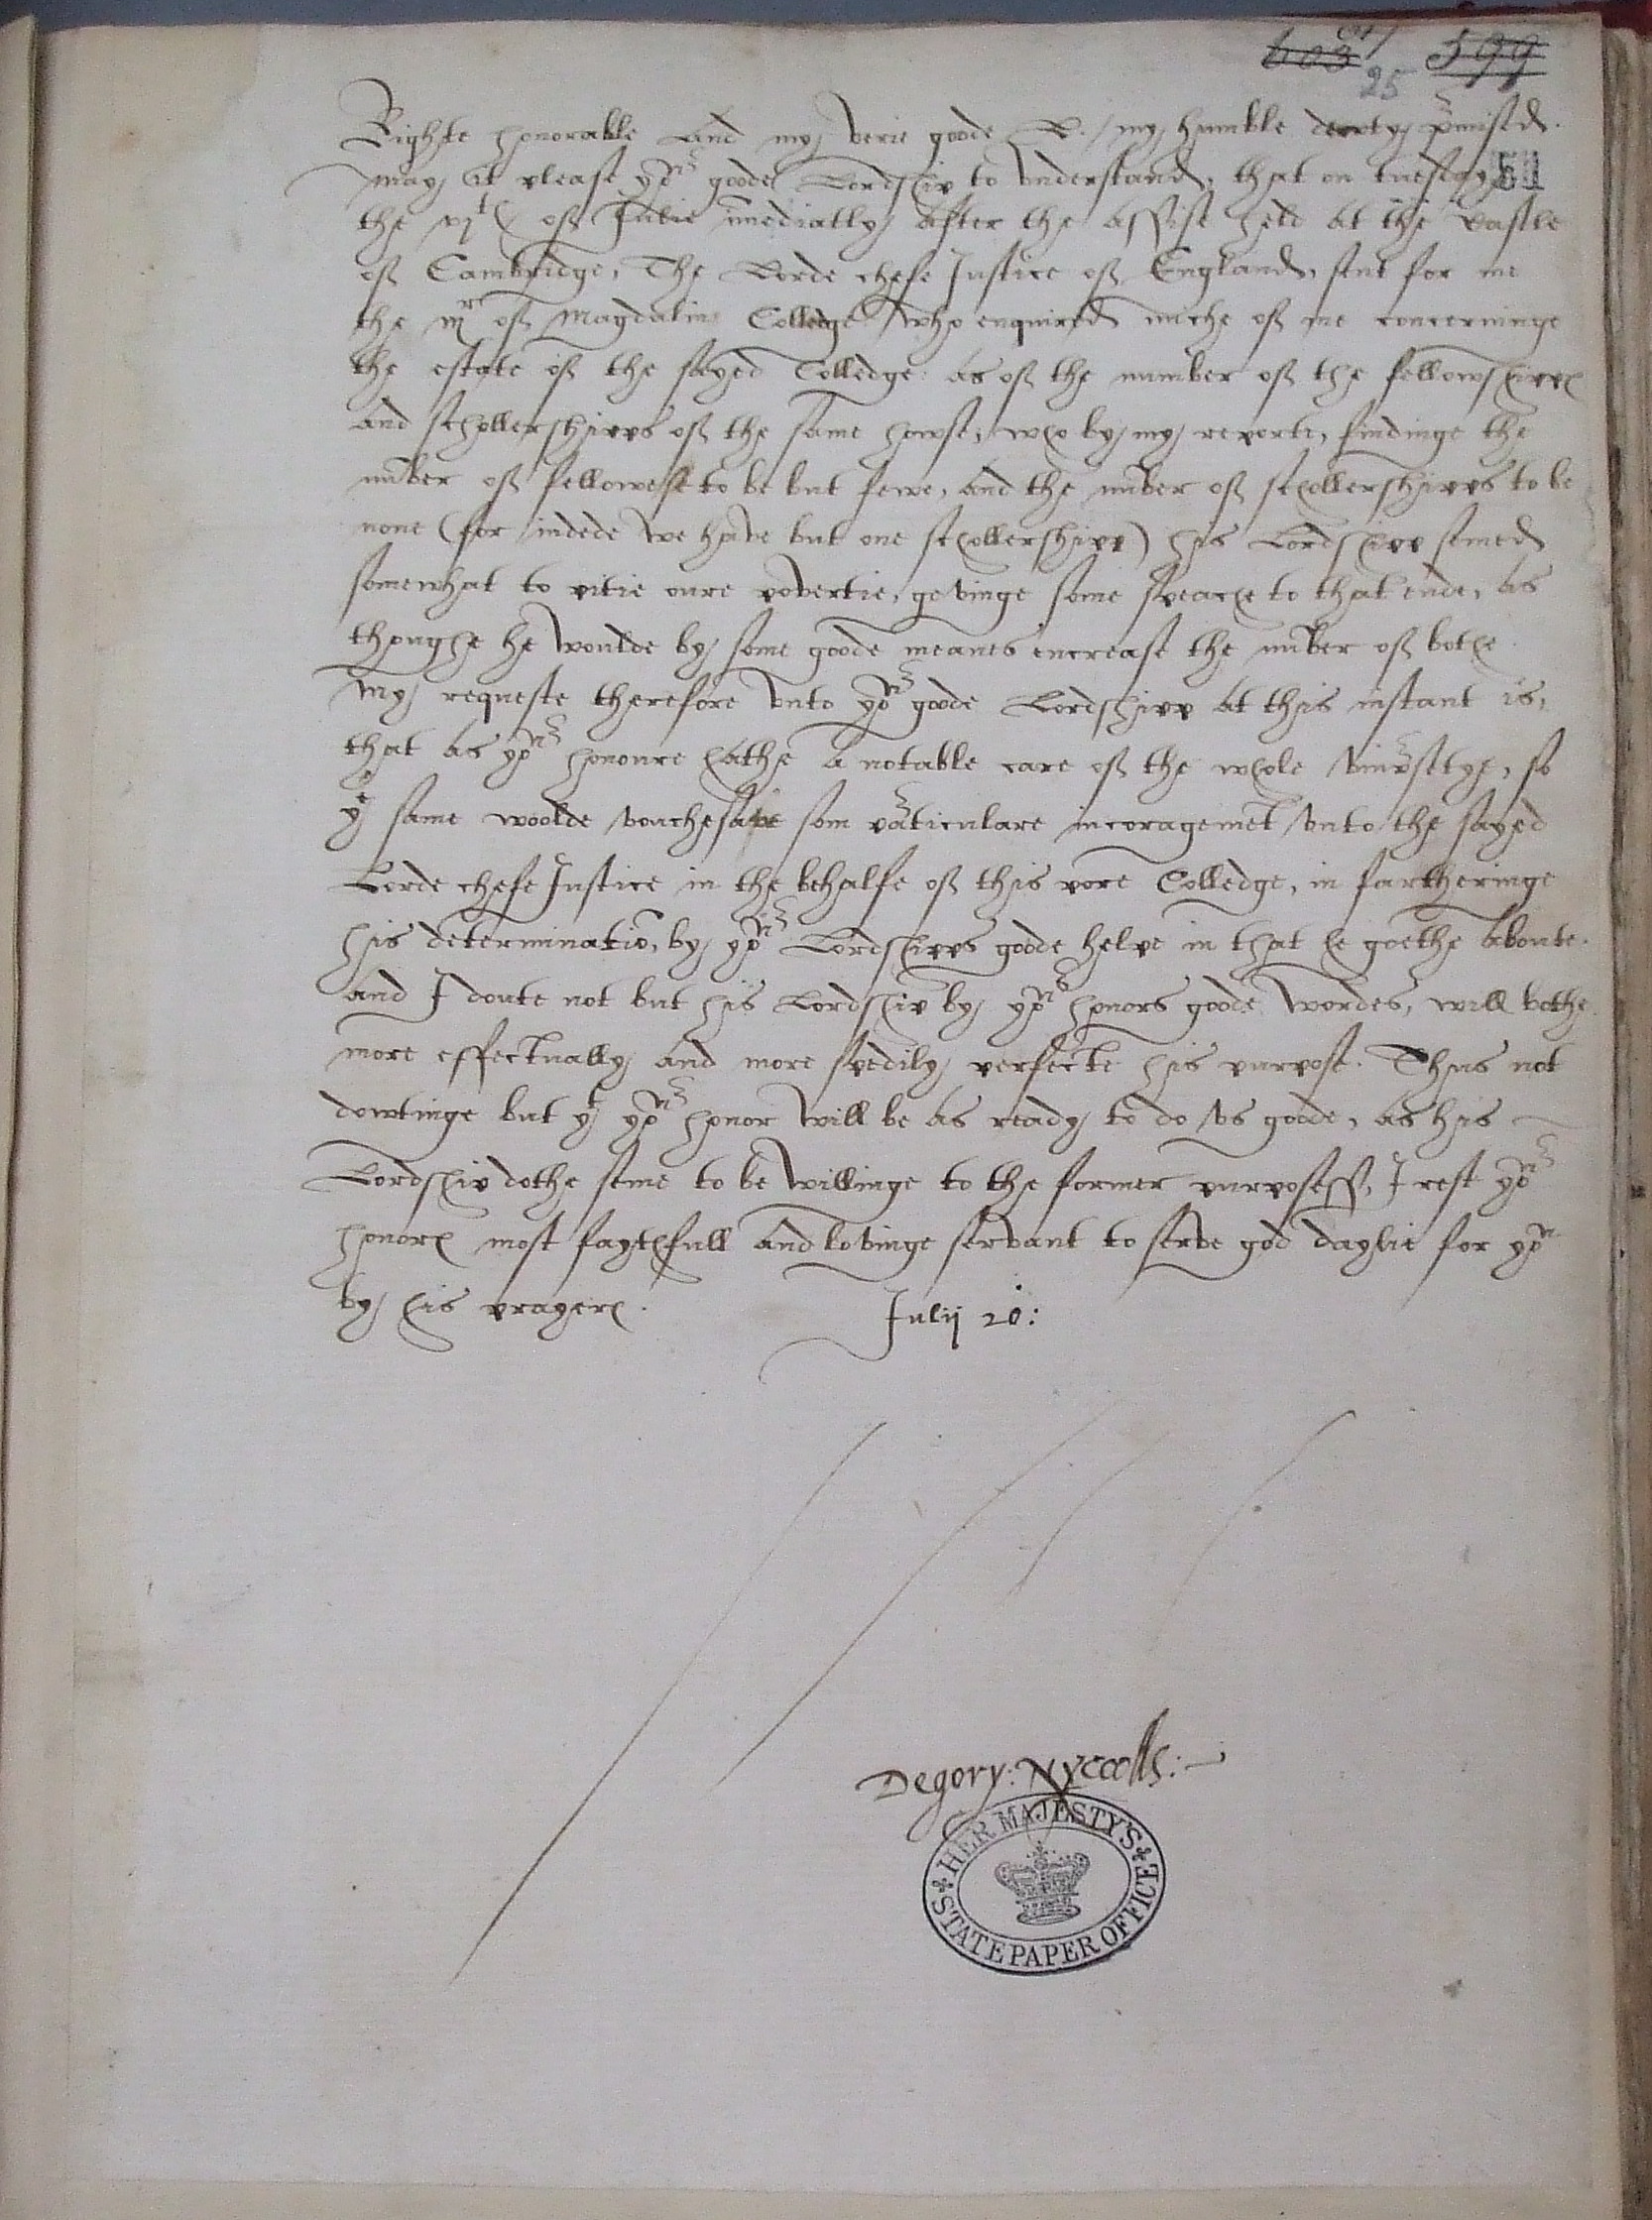 603 599
25
Righte honorable and my verie goode L. / my humble dewty p̃misëd.
may it please yor goode Lordship to understand, that on tuesday 51
the vjth of Julie im̃ediatly after the assise held at the Castle
of Cambridge, The Lorde chefe Justice of England, sent for me
the mr of Magdalin Colledge who enquired muche of me concerninge
the estate of the sayed Colledge: as of the number of the fellowshipps
and schollershipps of the same howse, who by my reporte, findinge the
nũber of fellowes to be but fewe, and the nũber of schollershipps to be
none (for indede we have but one schollershipp) his Lordshipp semed
somewhat to pitie oure povertie, gevinge some speache to that ende, as
thoughe he woulde by some goode meanes encrease the nũber of bothe.
my requeste therefore unto yor goode Lordshipp at this instant is,
that as yor honoure hathe a notable care of the whole Uniṽsitye, so
ye same woolde vouchesafe som p̃ticulare incoragemẽt unto the sayed
Lorde chefe Justice in the behalfe of this pore Colledge, in fartheringe
his determinatiõ, by yor Lordshipps goode helpe in that he goethe aboute.
and I doute not but his Lordship by yor honors goode wordes, will bothe
more effectually and more spedily perfecte his purpose. Thus not
dowtinge but yt yor honor will be as ready to do us goode, as his
Lordship dothe seme to be willinge to the former purposess, I rest yor
honors most faythfull and lovinge servant to serve god daylie for you
by his prayers. Julij 20:
Degory: Nycolls:
HER MAJESTY'S
STATE PAPER OFFICE